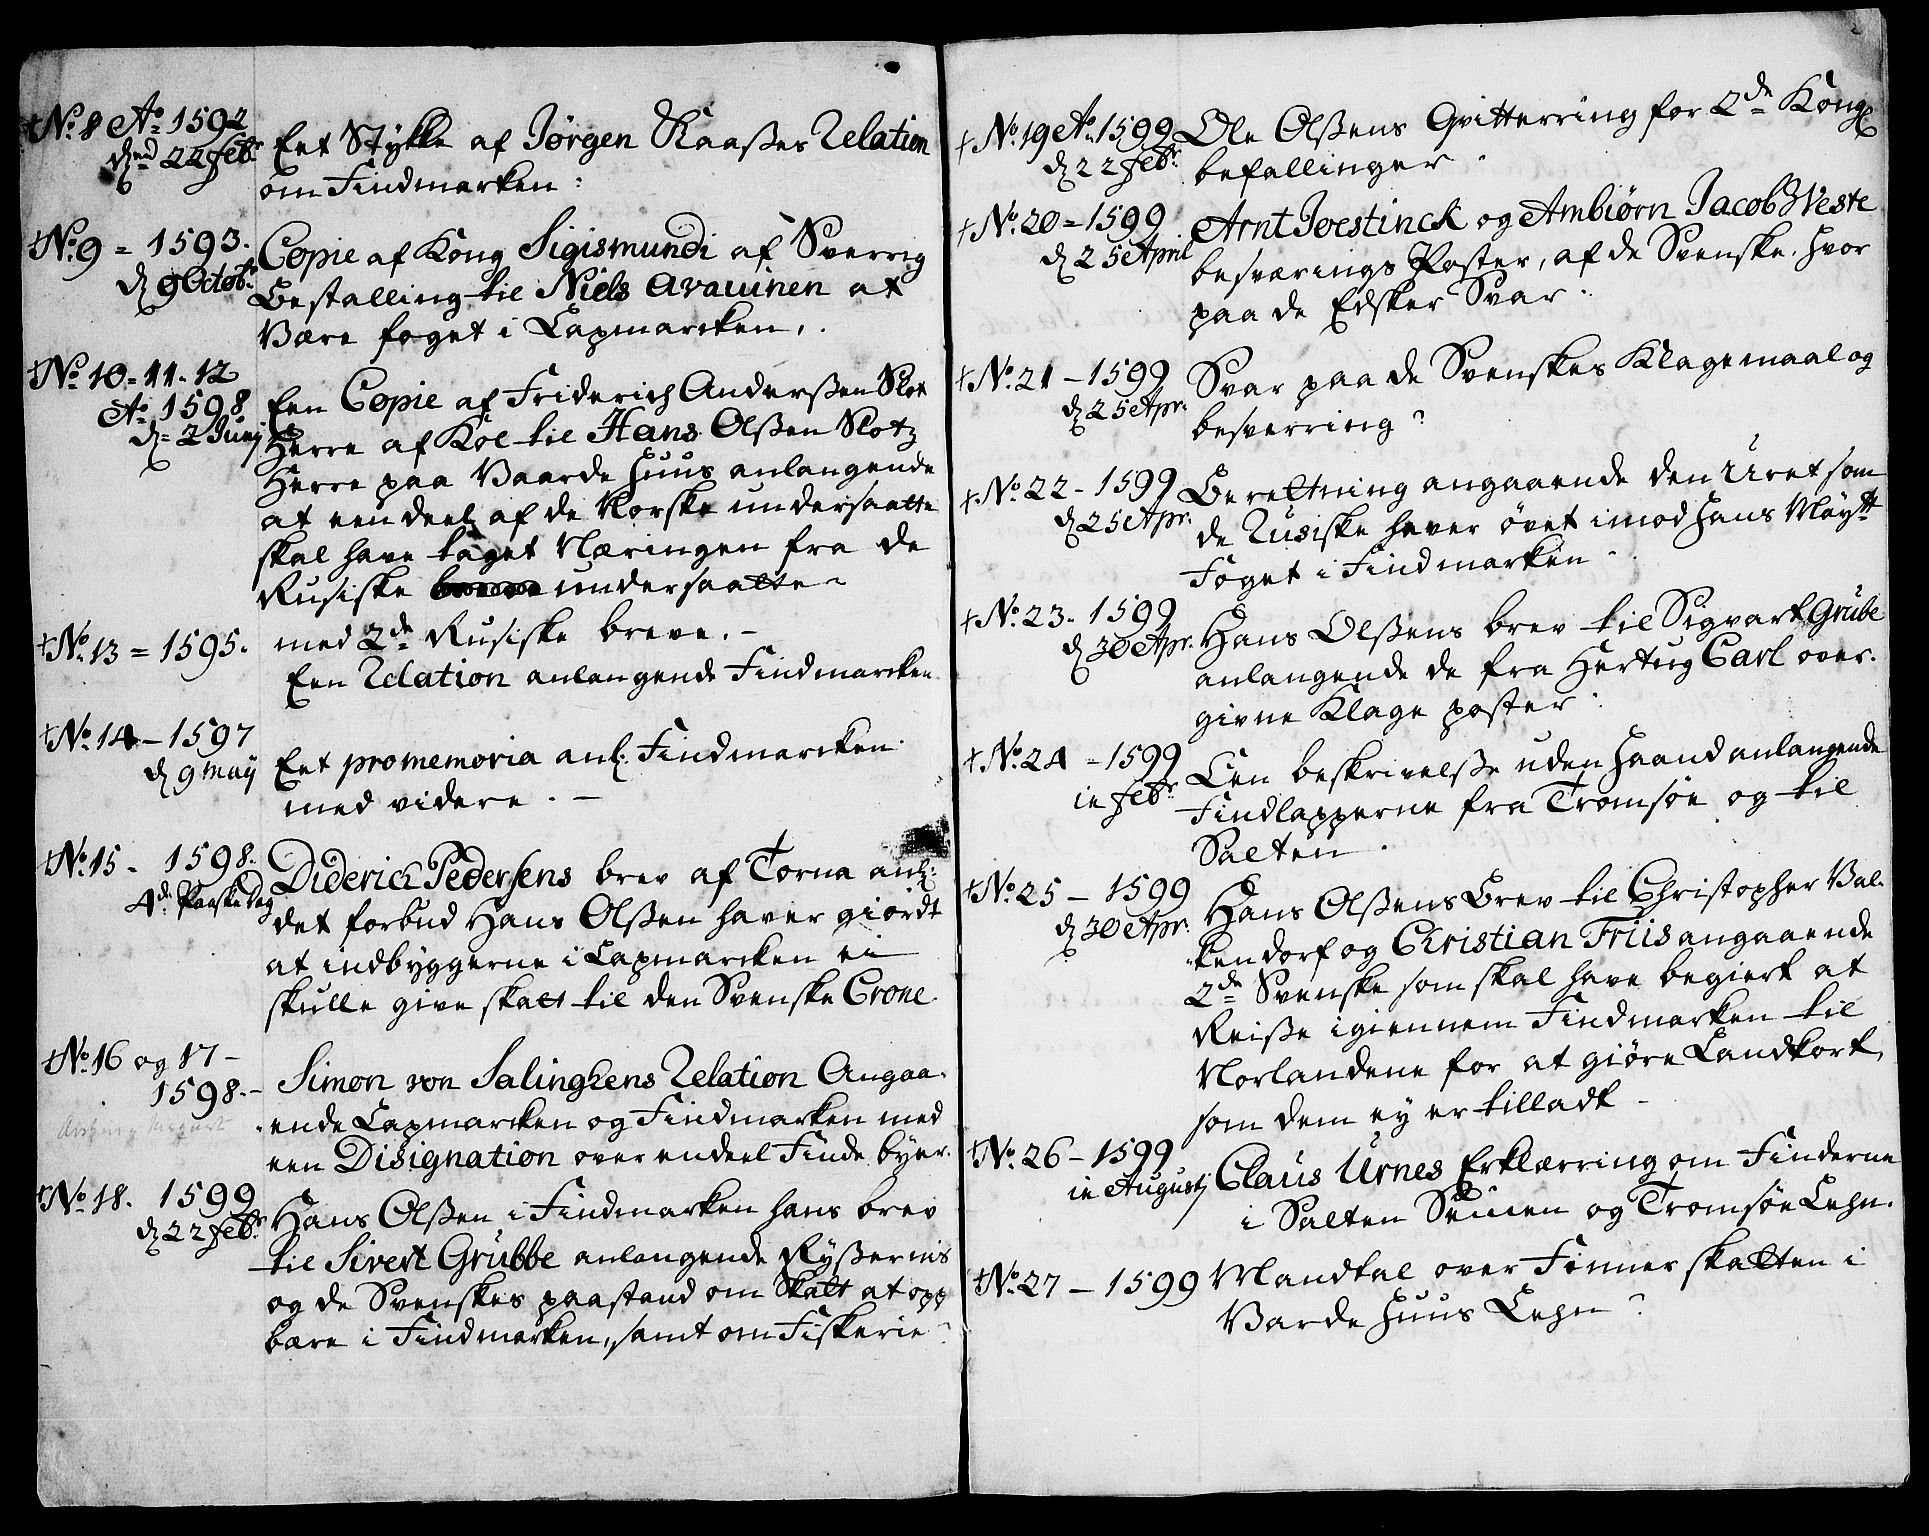 †No. 8 Ao. 1592
d. 22 febr.
Eet Stykke af Jørgen Kaaßes Relation
om Findmarken:
†No. 9 = 1593.
d. 9 Octobr.
Copie af Kong Sigismundi af Sverrig
Bestalling til Niels Aravinen at
Være foget i Lapmarcken.
†No. 10 = 11 - 12
Ao. 1598
d. 2 Junj
Een Copie af Friderich Anderßen Slot
Herre af Kol til Hans Olßen Slotz
Herre paa Vaarde Huus anlangende
at een deel af de Norske undersaatte
skal have taget Næringen fra de
Rusiske undersaatte
med 2de Rusiske breve. -
†No. 13 = 1595.
Een Relation anlangende Findmarcken
†No. 14 - 1597
d. 9 maÿ
Eet promemoria anl. Findmarcken
med videre. -
†No. 15 - 1598.
4de Paaske Dag
Diderich Pedersens brev af Torna anl:
det forbud Hans Olßen haver giordt
at indbyggerne i Lapmarcken ei
skulle give skatt til den Svenske Crone.
†No. 16 og 17 -
1598. -
Simon von Salinghens Relation Angaa-
ende Lapmarcken og Findmarken med
een Disignation over endeel Finde byer.
†No. 18. 1599
d. 22 febr.
Hans Olßen i Findmarken hans brev
til Sivert Grubbe anlangende Rÿßernis
og de Svenskes paastand om Skatt at opp
bære i Findmarken, samt om Fiskerie
†No. 19 Ao. 1599
d. 22 febr.
Ole Olßens Qvitterring for 2de Kongl.
befallinger
†No. 20 = 1599
d. 25 April
Arnt Joestinck og Ambiørn Jacob Weste
besværings Poster, af de Svenske, hvor
paa de Edsker Svar.
†No. 21 - 1599
d. 25 Apr.
Svar paa de Svenskes Klagemaal og
besverring
†No. 22 - 1599
d. 25 Apr.
Berettning angaaende den Uret som
de Rusiske haver øvet imod Hans Mayts
Foget i Findmarken
†No. 23. 1599
d. 30 Apr.
Hans Olßens brev til Sigvart Grube
anlangende de fra Hertug Carl over-
givne Klage poster
†No. 24 = 1599
in febr.
Een beskrivelße uden Haand anlangende
Findlapperne fra Tromsøe og til
Salten.
†No. 25 - 1599
d. 30 Apr.
Hans Olßens Brev til Christopher Val-
kendorf og Christian Friis angaaende
2de Svenske som skal have begiert at
Reiße igiennem Findmarken til
Norlandene for at giøre Landkort,
som dem eÿ er tilladt -
†No. 26 - 1599
in Augustj
Claus Urnes Erklærring om Finderne
i Salten Senien og Tromsøe Lehn.
†No. 27 - 1599
Mandtal over Finner skatten i
Varde Huus Lehn